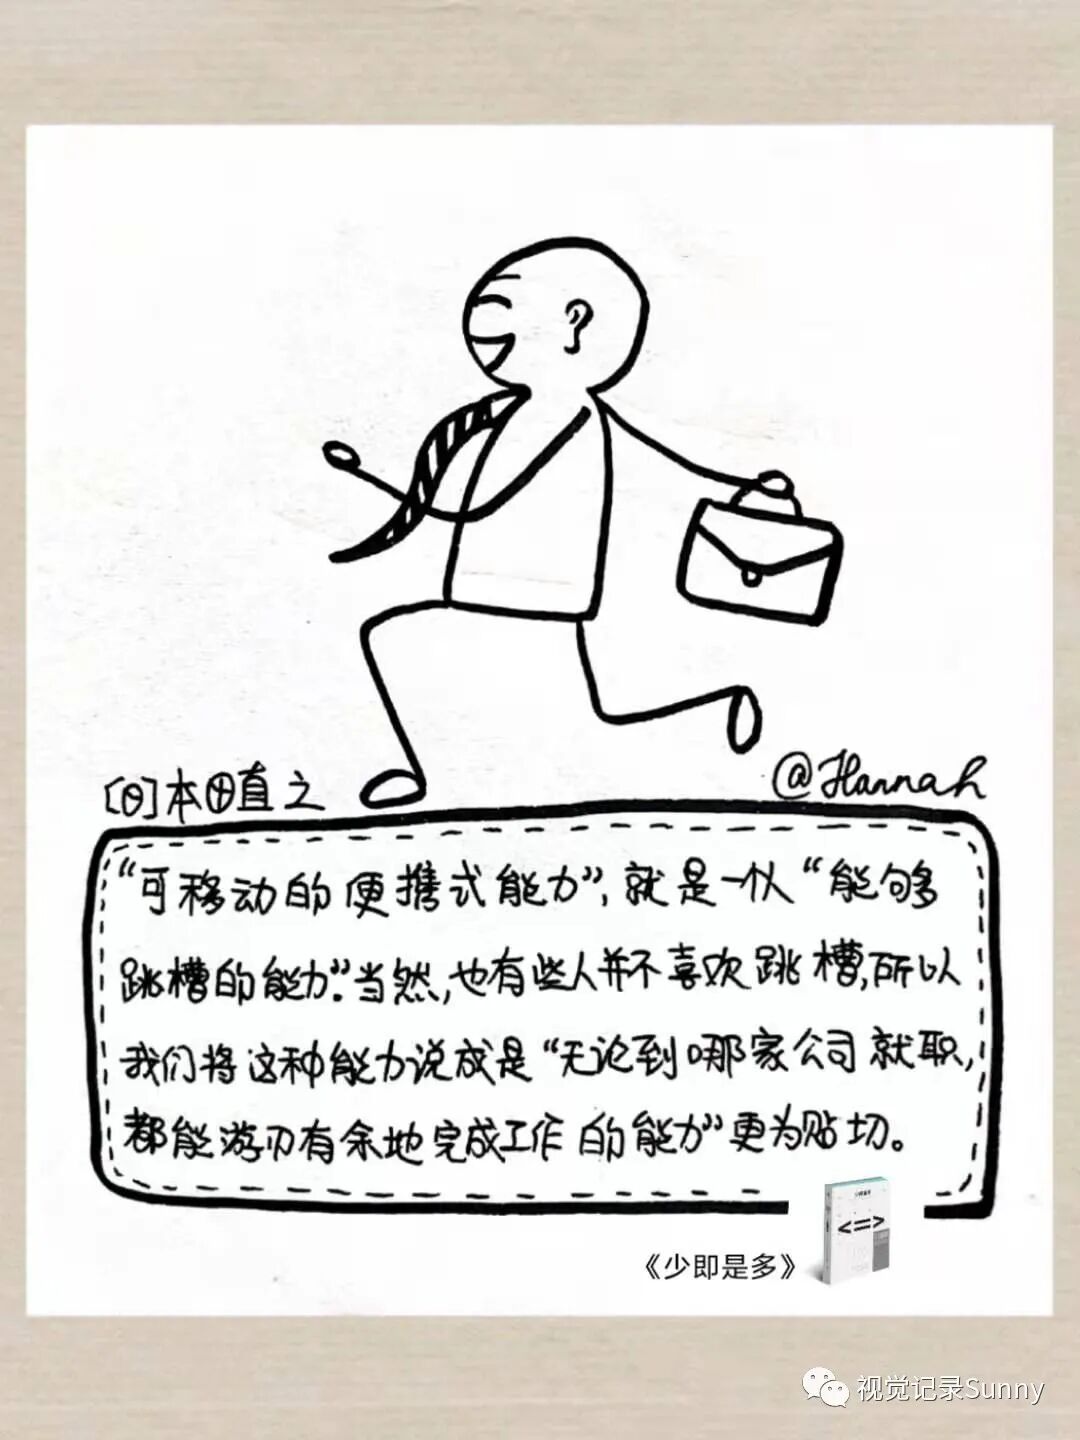 [日]本田直之
@Hannah
“可移动的便携式能力”,就是一种“能够
跳槽的能力”。当然,也有些人并不喜欢跳槽,所以
我们将这种能力说成是“无论到哪家公司就职,
都能游刃有余地完成工作的能力”更为贴切。
<=>
《少即是多》
视觉记录Sunny